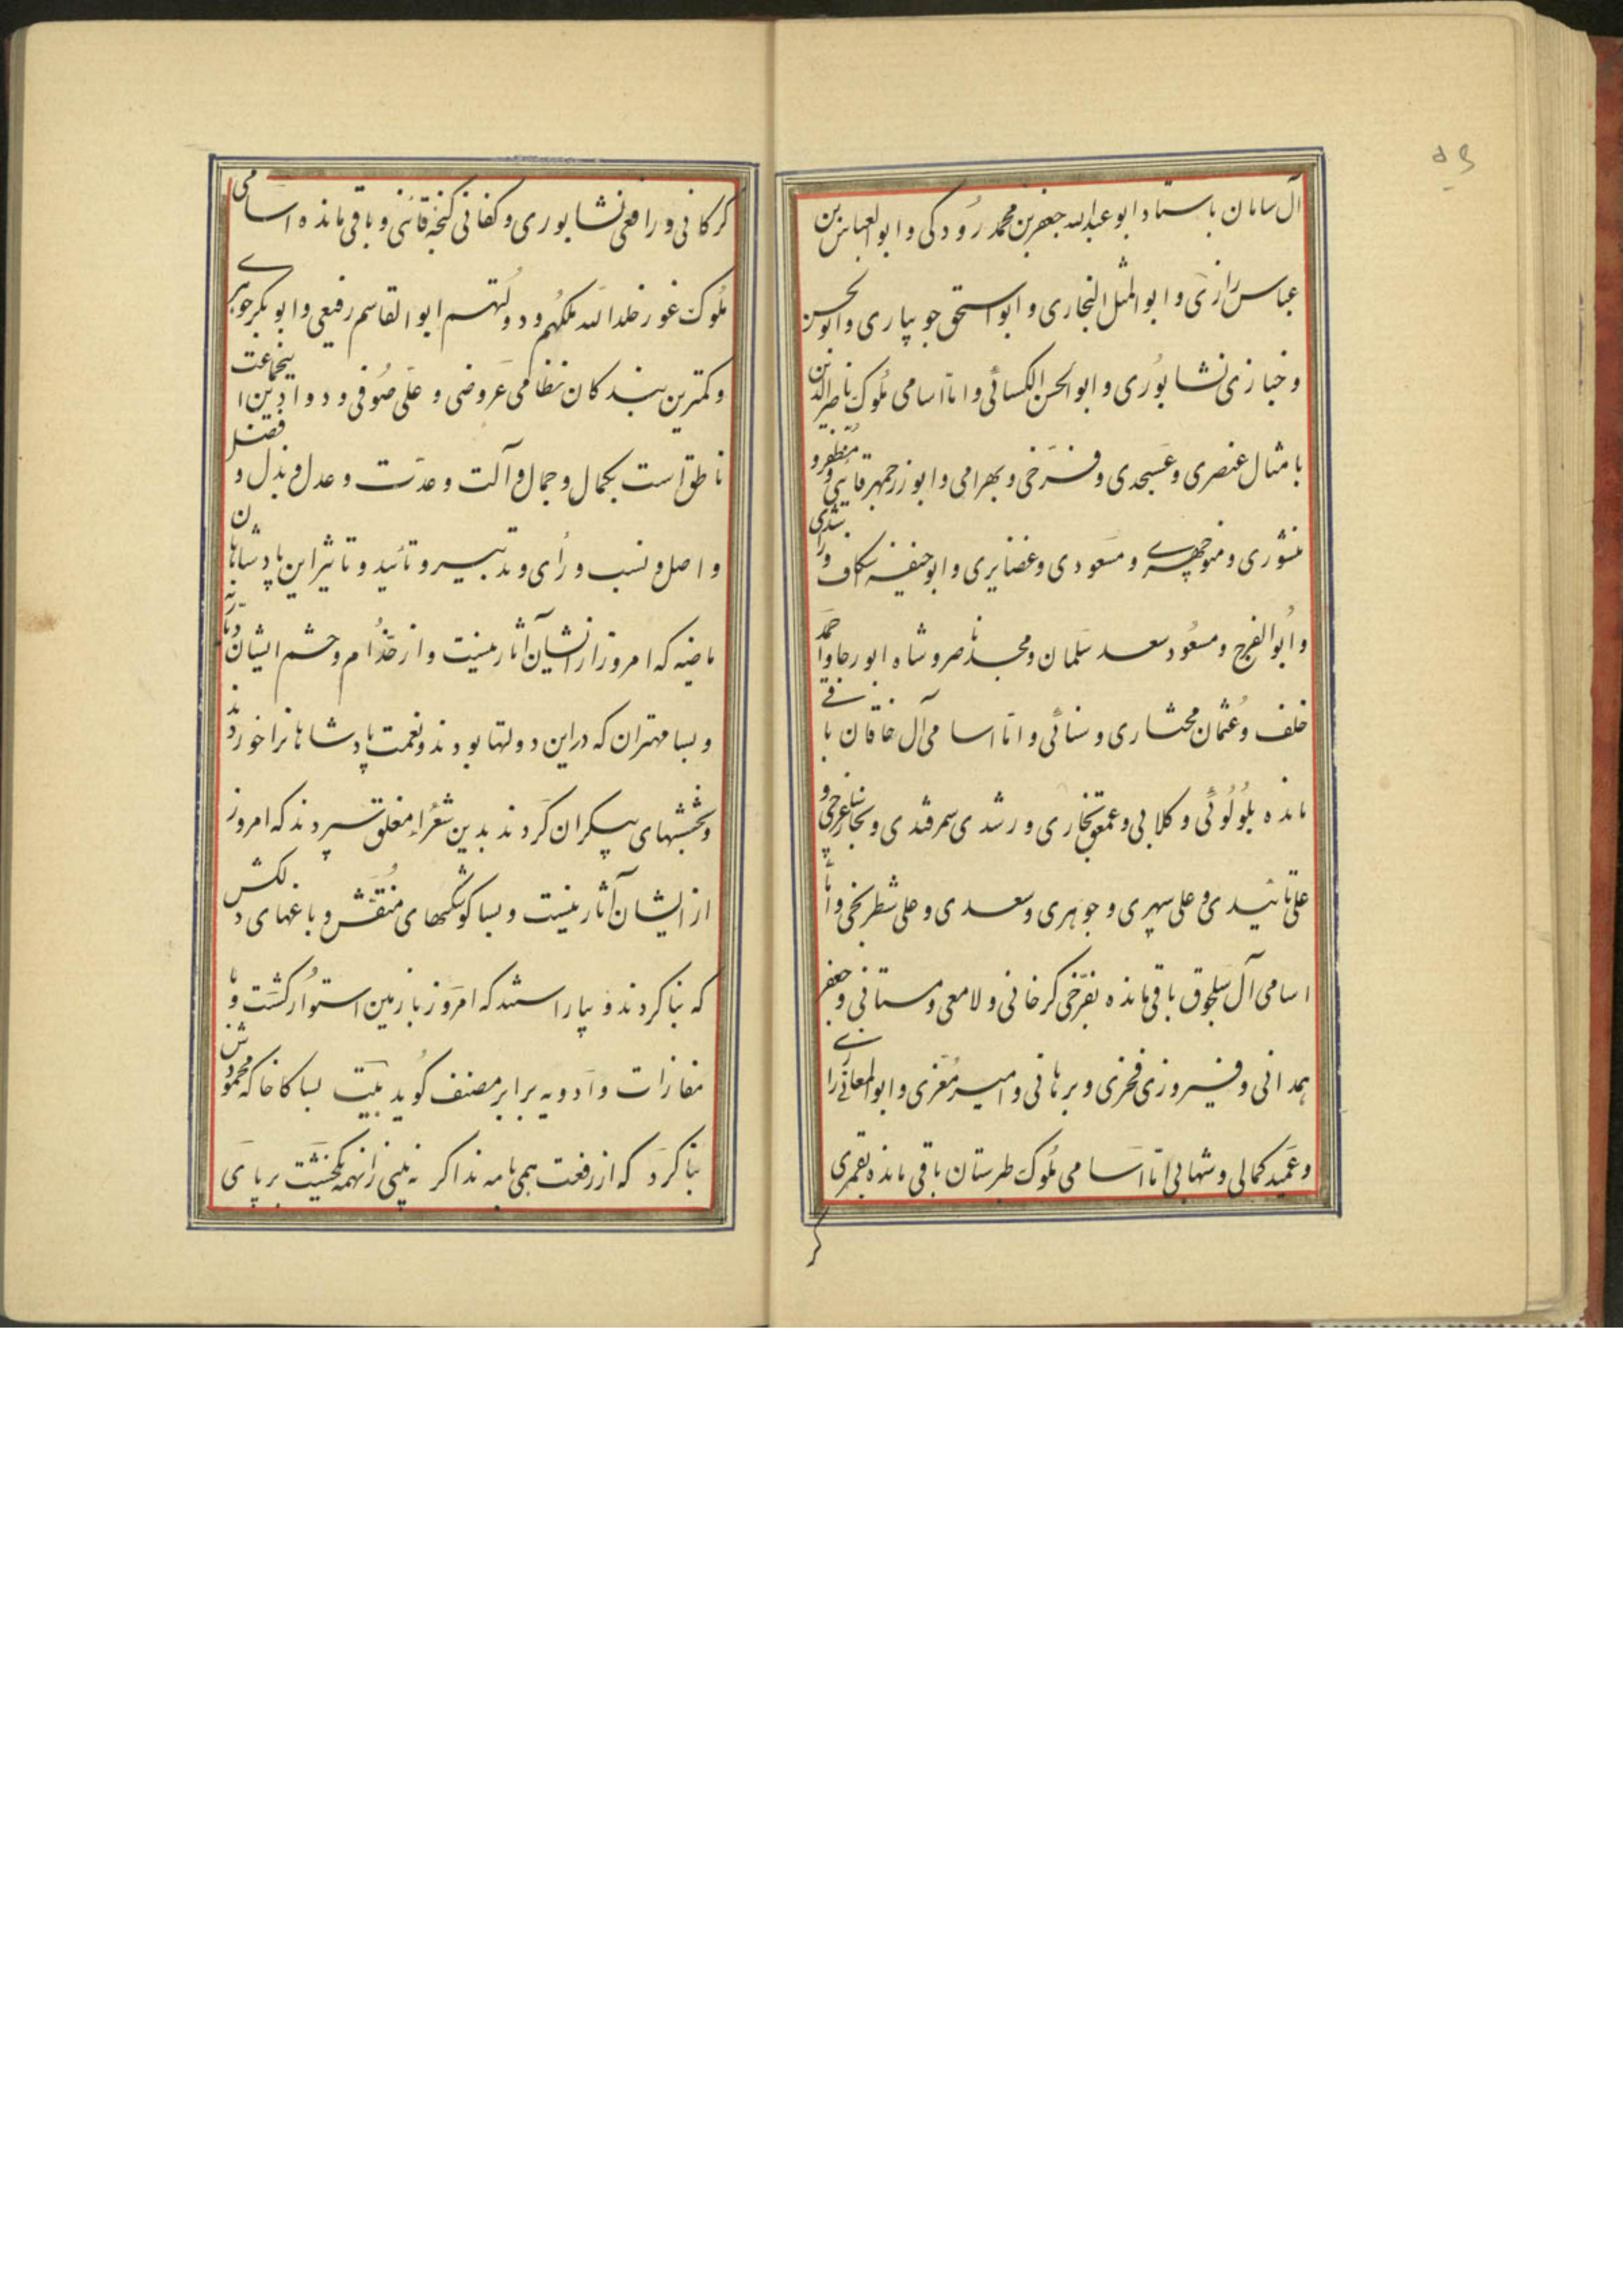 آل سامان باستاد ابو عبدالله جعفر بن محمد رودکی و ابو العباس بن
عباس رازی و ابو المثل البخاری و ابو اسحق جویباری و ابو الحسن
و خبازی نشابوری و ابو الحسن الکسائی و اما اسامی ملوک ناصرالدین
بامثال عنصری و عسجدی و فرخی و بهرامی و ابو زرجمهر قائنی و مظفر و
منشوری و منوچهری و مسعودی و غضایری و ابو حنیفه سکاف و راشدی
و ابو الفرج و مسعود سعد سلمان و محمد ناصر و شاه ابو رجا و احمد
خلف و عثمان مختاری و سنائی و اما اسامی آل خاقان باقی
مانده بلولوئی و کلابی و عمعق بخاری و رشدی سمرقندی و نجار ساغرجی و
علی تائیدی و علی سپهری و جوهری و سعدی و علی شطرنجی و اما
اسامی آل سلجوق باقی مانده بفرخی کرخانی و لامعی دهستانی و جعفر
همدانی و فیروزی فخری و برهانی و امیر معزی و ابو المعالی رازی
و عمید کمالی و شهابی اما اسامی ملوک طبرستان باقی مانده بقمری
کر
کرکانی و رافعی نشابوری و کفائی کنجه قائنی و باقی مانده اسامی
ملوک غور خلد الله ملکهم و دولتهم ابو القاسم رفیعی و ابو بکر جوهری
و کمترین بندکان نظامی عروضی و علی صوفی و دواوین اینجماعت
ناطق است بکمال و جمال و آلت و عدت و عدل و بذل و فضل
و اصل و نسب و رای و تدبیر و تائید و تاثیر این پادشاهان
ماضیه که امروز از انشیان آثار نیست و از خدام و حشم ایشان دیار نه
و بسا مهتران که در این دولتها بودند و نعمت پادشاهان را خوردند
و بخششهای بیکران کردند بدین شعراء مفلق سپردند که امروز
از ایشان آثار نیست و بسا کوشکهای منقش و باغهای دلکش
که بنا کردند و بیاراستند که امروز با زمین استوار کشت و با
مفازات و ادویه برابر مصنف کوید بیت بسا کاخا که محمودش
بنا کرد که از رفعت همی بامه ندا کر نه بینی زانهمه یکخشت بر پای